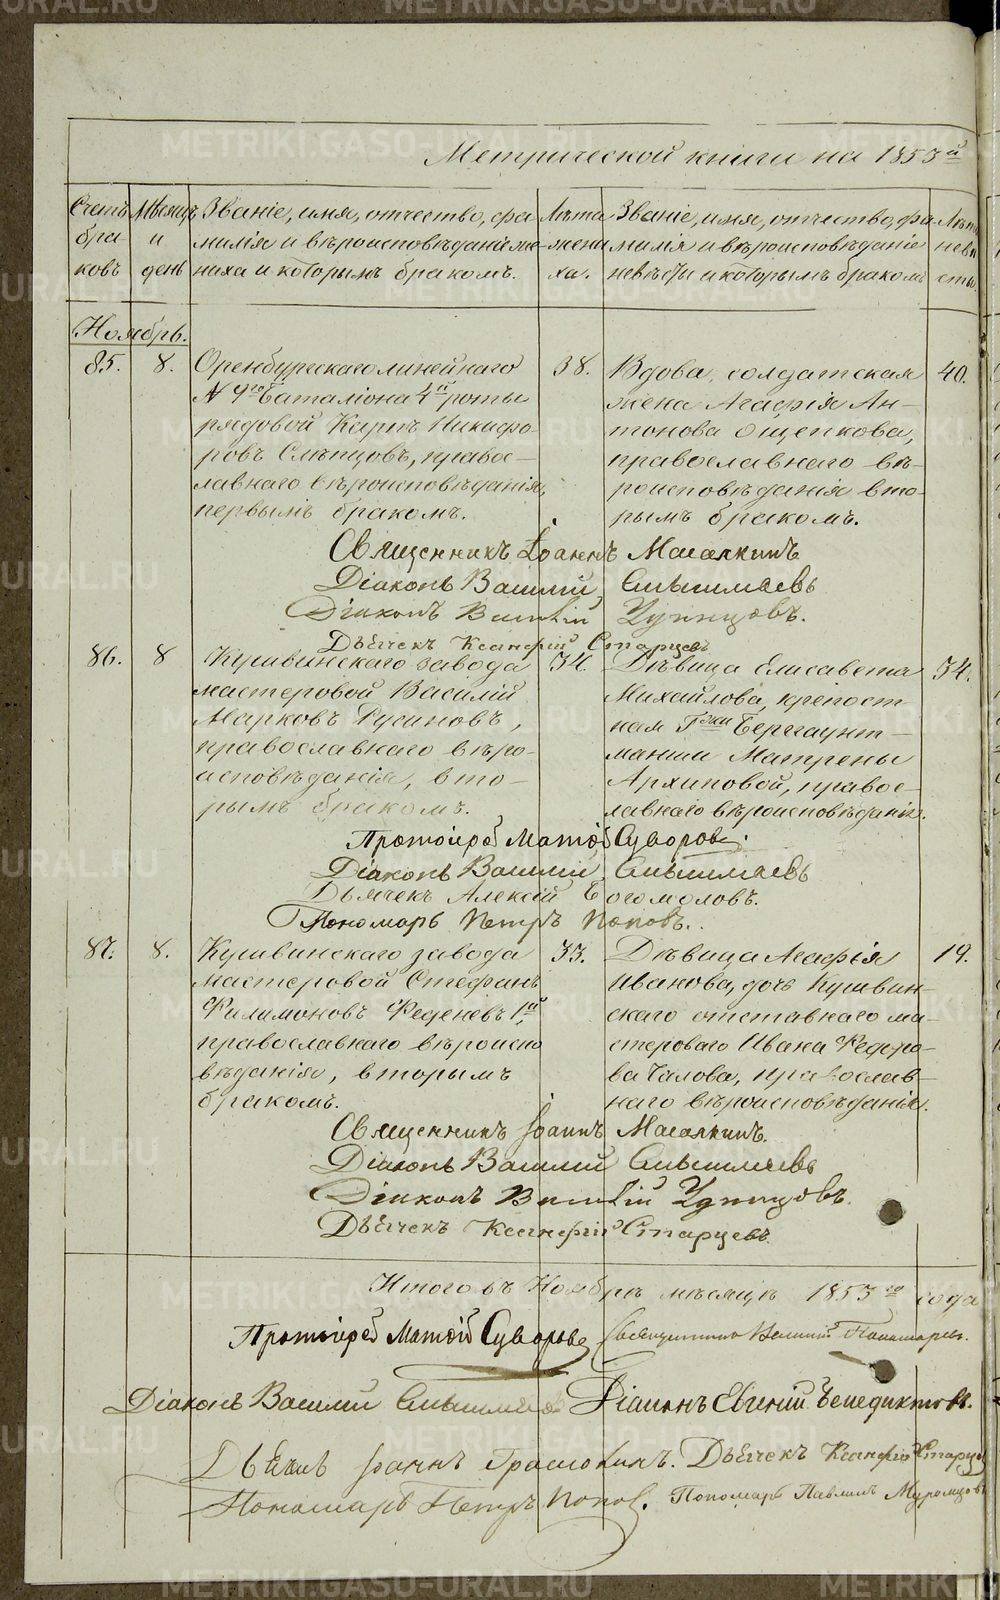 Метрической книги на 1853й
Счетъ браковъ
Мѣсяцъ и день
Званіе, имя, отчество, фамилія и вѣроисповѣданіе жениха и которымъ бракомъ.
Лѣта жениха.
Званіе, имя, отчество, фамилія и вѣроисповѣданіе невѣсты и которымъ бракомъ
Лѣта невѣсты.
Ноябрь.
85. 8.
Оренбургскаго линейнаго
№ 9го баталіона 4й роты
рядовой Карпъ Никифо-
ровъ Слѣпцовъ, правос-
лавнаго вѣроисповѣданія,
первымъ бракомъ.
38.
Вдова, солдатская
жена Агафія Ан-
тонова Ощепкова,
православнаго вѣ-
роисповѣданія вто-
рымъ бракомъ.
40.
Священникъ Іоаннъ
Діаконъ Василій
Діаконъ
Дьячекъ Ксенофій Старцевъ
86. 8
Кушвинскаго завода
мастеровой Василій
Марковъ Русиновъ,
православнаго вѣро-
исповѣданія, вто-
рымъ бракомъ.
34.
Дѣвица Елисавета
Михайлова, крепост
ная Гжи Бергаупт-
манши Матрены
Архиповой, правос-
лавнаго вѣроисповѣданія.
34.
Протоіерей Матѳій Суворовъ.
Діаконъ Василій
Дьячекъ Алексій Богомоловъ.
Пономарь Петръ Поповъ.
87. 8.
Кушвинскаго завода
мастеровой Стефанъ
Филимоновъ Феденевъ 1й
православнаго вѣроиспо
вѣданія, вторымъ
бракомъ.
33.
Дѣвица Агафія
Иванова, дочь Кушвин-
скаго отставнаго ма-
стероваго Ивана Федоро-
ва Чалова, православ-
наго вѣроисповѣданія.
19.
Священникъ Іоаннъ
Діаконъ Василій
Діаконъ
Дьячекъ Ксенофій Старцевъ
Итого въ Ноябрѣ мѣсяцѣ 1853го года
Протоіерей Матѳій Суворовъ Священникъ Василій Пономаревъ.
Діаконъ Василій Діаконъ Евгеній Бенедиктовъ.
Іоаннъ Дьячекъ Ксенофій Старцевъ
Пономарь Петръ Поповъ. Пономарь Павлинъ Муромцовъ
METRIKI.GASO-URAL.RU